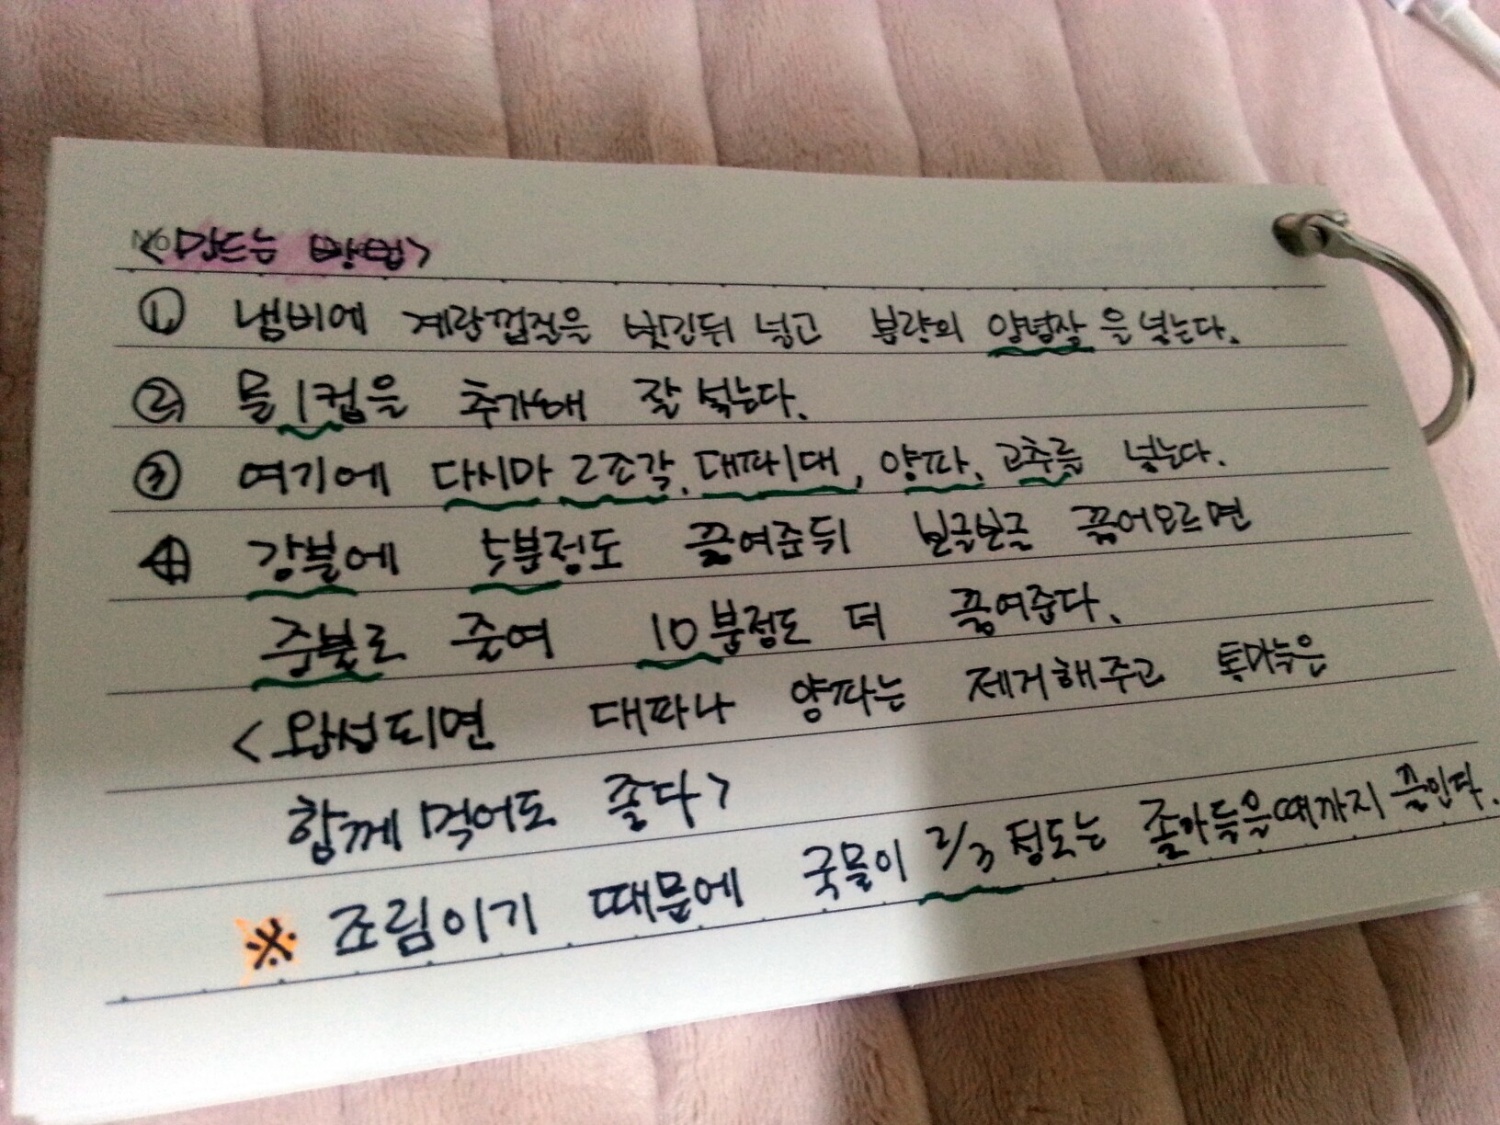 <만드는 방법>
① 냄비에 계란껍질을 벗긴뒤 넣고 분량의 양념장을 넣는다.
② 물 1컵을 추가해 잘 섞는다.
③ 여기에 다시마 2조각, 대파1대, 양파, 고추를 넣는다.
④ 강불에 5분정도 끓여준뒤 보글보글 끓어오르면
중불로 줄여 10분정도 더 끓여준다.
<완성되면 대파나 양파는 제거해주고 통마늘은
함께 먹어도 좋다>
※ 조림이기 때문에 국물이 2/3 정도는 졸아들을때까지 끓인다.